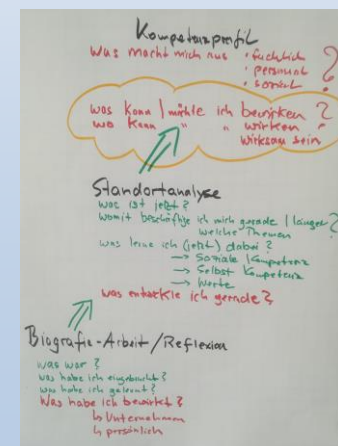 Kompetenzprofil
Was macht mich aus • fachlich ?
• personal
• sozial
was kann | möchte ich bewirken ?
wo kann " " wirken
wirksam sein
Standortanalyse
was ist jetzt ?
womit beschäftige ich mich gerade | länger ?
welche Themen
was lerne ich (jetzt) dabei ?
→ Soziale Kompetenz
→ Selbst Kompetenz
→ Werte
was entwickle ich gerade ?
Biografie-Arbeit / Reflexion
was war ?
was habe ich eingebracht ?
was habe ich gelernt ?
Was habe ich bewirkt ?
↳ Unternehmen
↳ persönlich